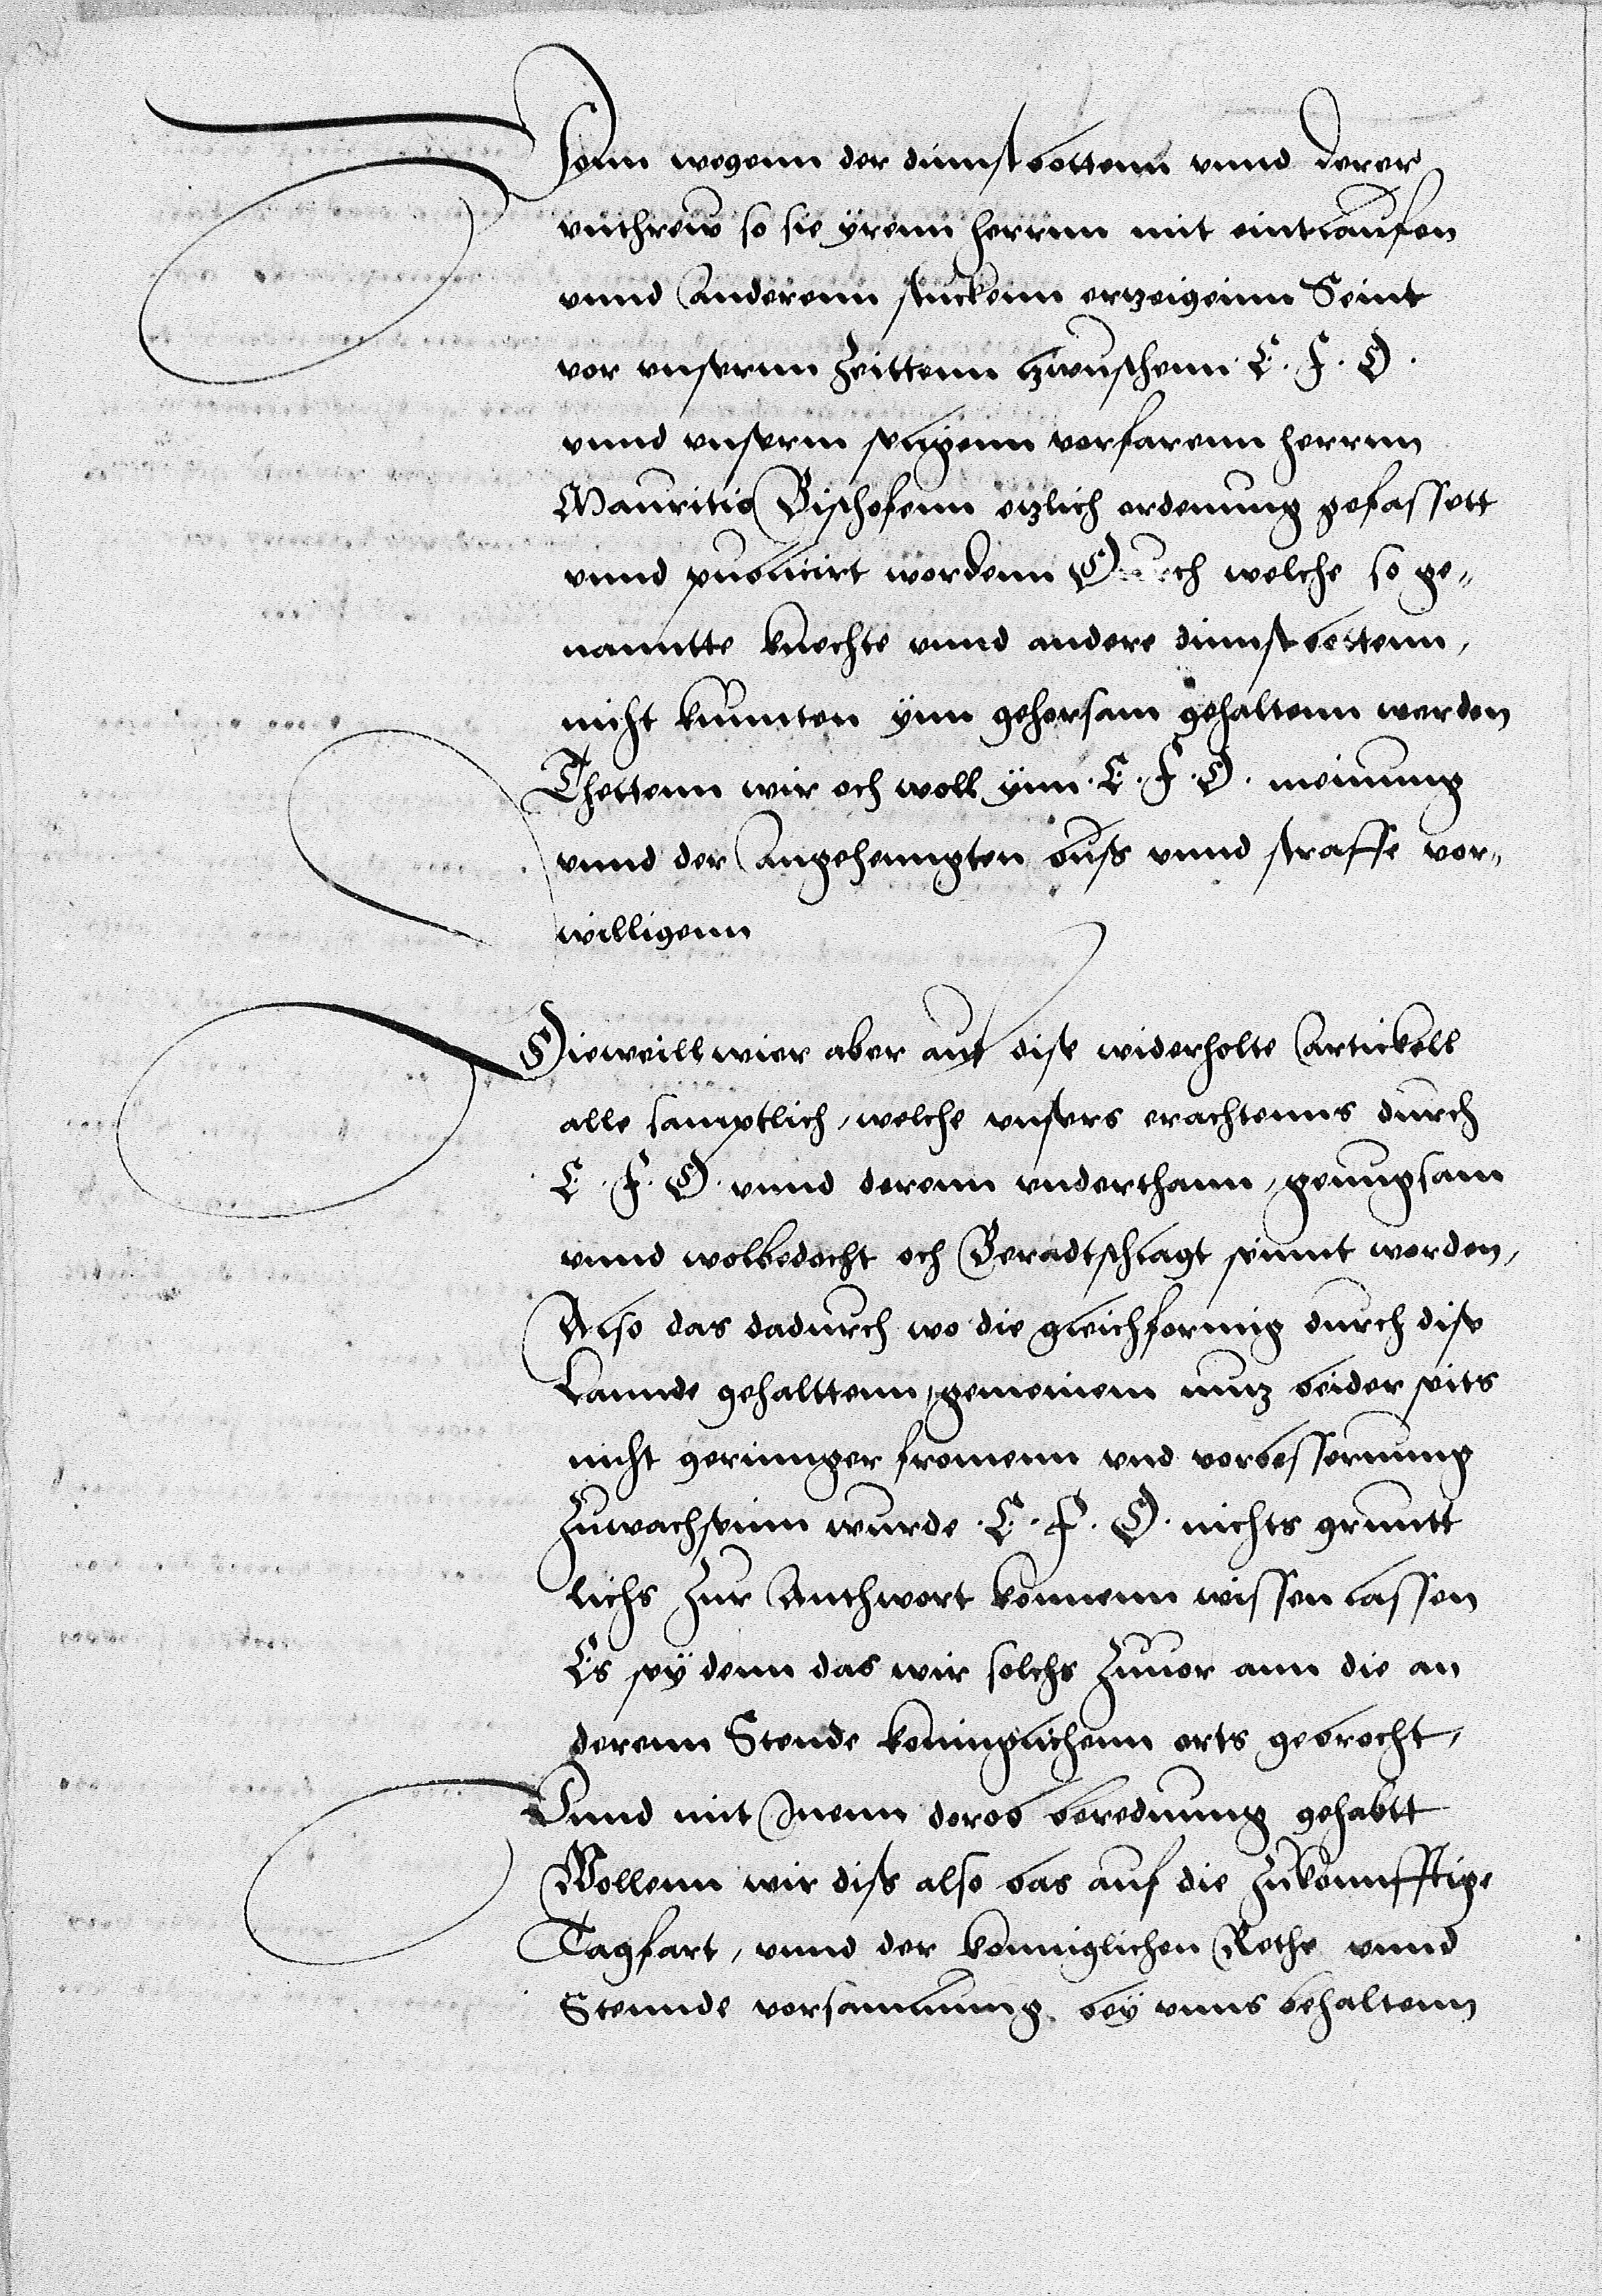 Vonn wegenn der dinnstbottenn vnnd derer
vnthrew so sie yrenn herrnn mit eintlaufen
vnnd Anderenn stuckenn ertzeigeinn Seint
vor vnsernn Zeittenn tzwuschenn E. F. D.
vnnd vnserm seligenn vorfarenn herrnn
Mauritio Bischofenn etzlich ordenung gefassett
vnnd publicirt wordenn Durch welche so ge„
nanntte knechte vnnd andere dinnstbottenn,
nicht kunnten ynn gehorsam gehaltenn werden
Thettenn wir och woll ynn E. F. D. meinung
vnnd der Angehenngten buss vnnd straffe vor„
willigenn
Dieweill wier aber auf dise widerholte Artickell
alle samptlich, welche vnsers erachtenns durch
E. F. D. vnnd derenn vnderthann, genugsam
vnnd wolbedocht och Beradtschlagt seinnt worden,
Also das dadurch wo die gleichformig durch dise
Lannde gehalttenn, gemeinem nutz beider seits
nicht geringer fromenn vnd vorbesserung
Zuwachsenn wurde E. F. D. nichts gruntt
lichs Zur Anthwort konnenn wissen lassen
Es sey denn das wir solchs Zuuor ann die an
derenn Stende koninglichenn orts gebrocht,
Vnnd mit Inenn dorob berednung gehabtt
Wollenn wir diss also bas auf die Zukonnfftige
Tagfart, vnnd der konniglichen Rethe vnnd
Stennde vorsamlung bey vnns behaltenn